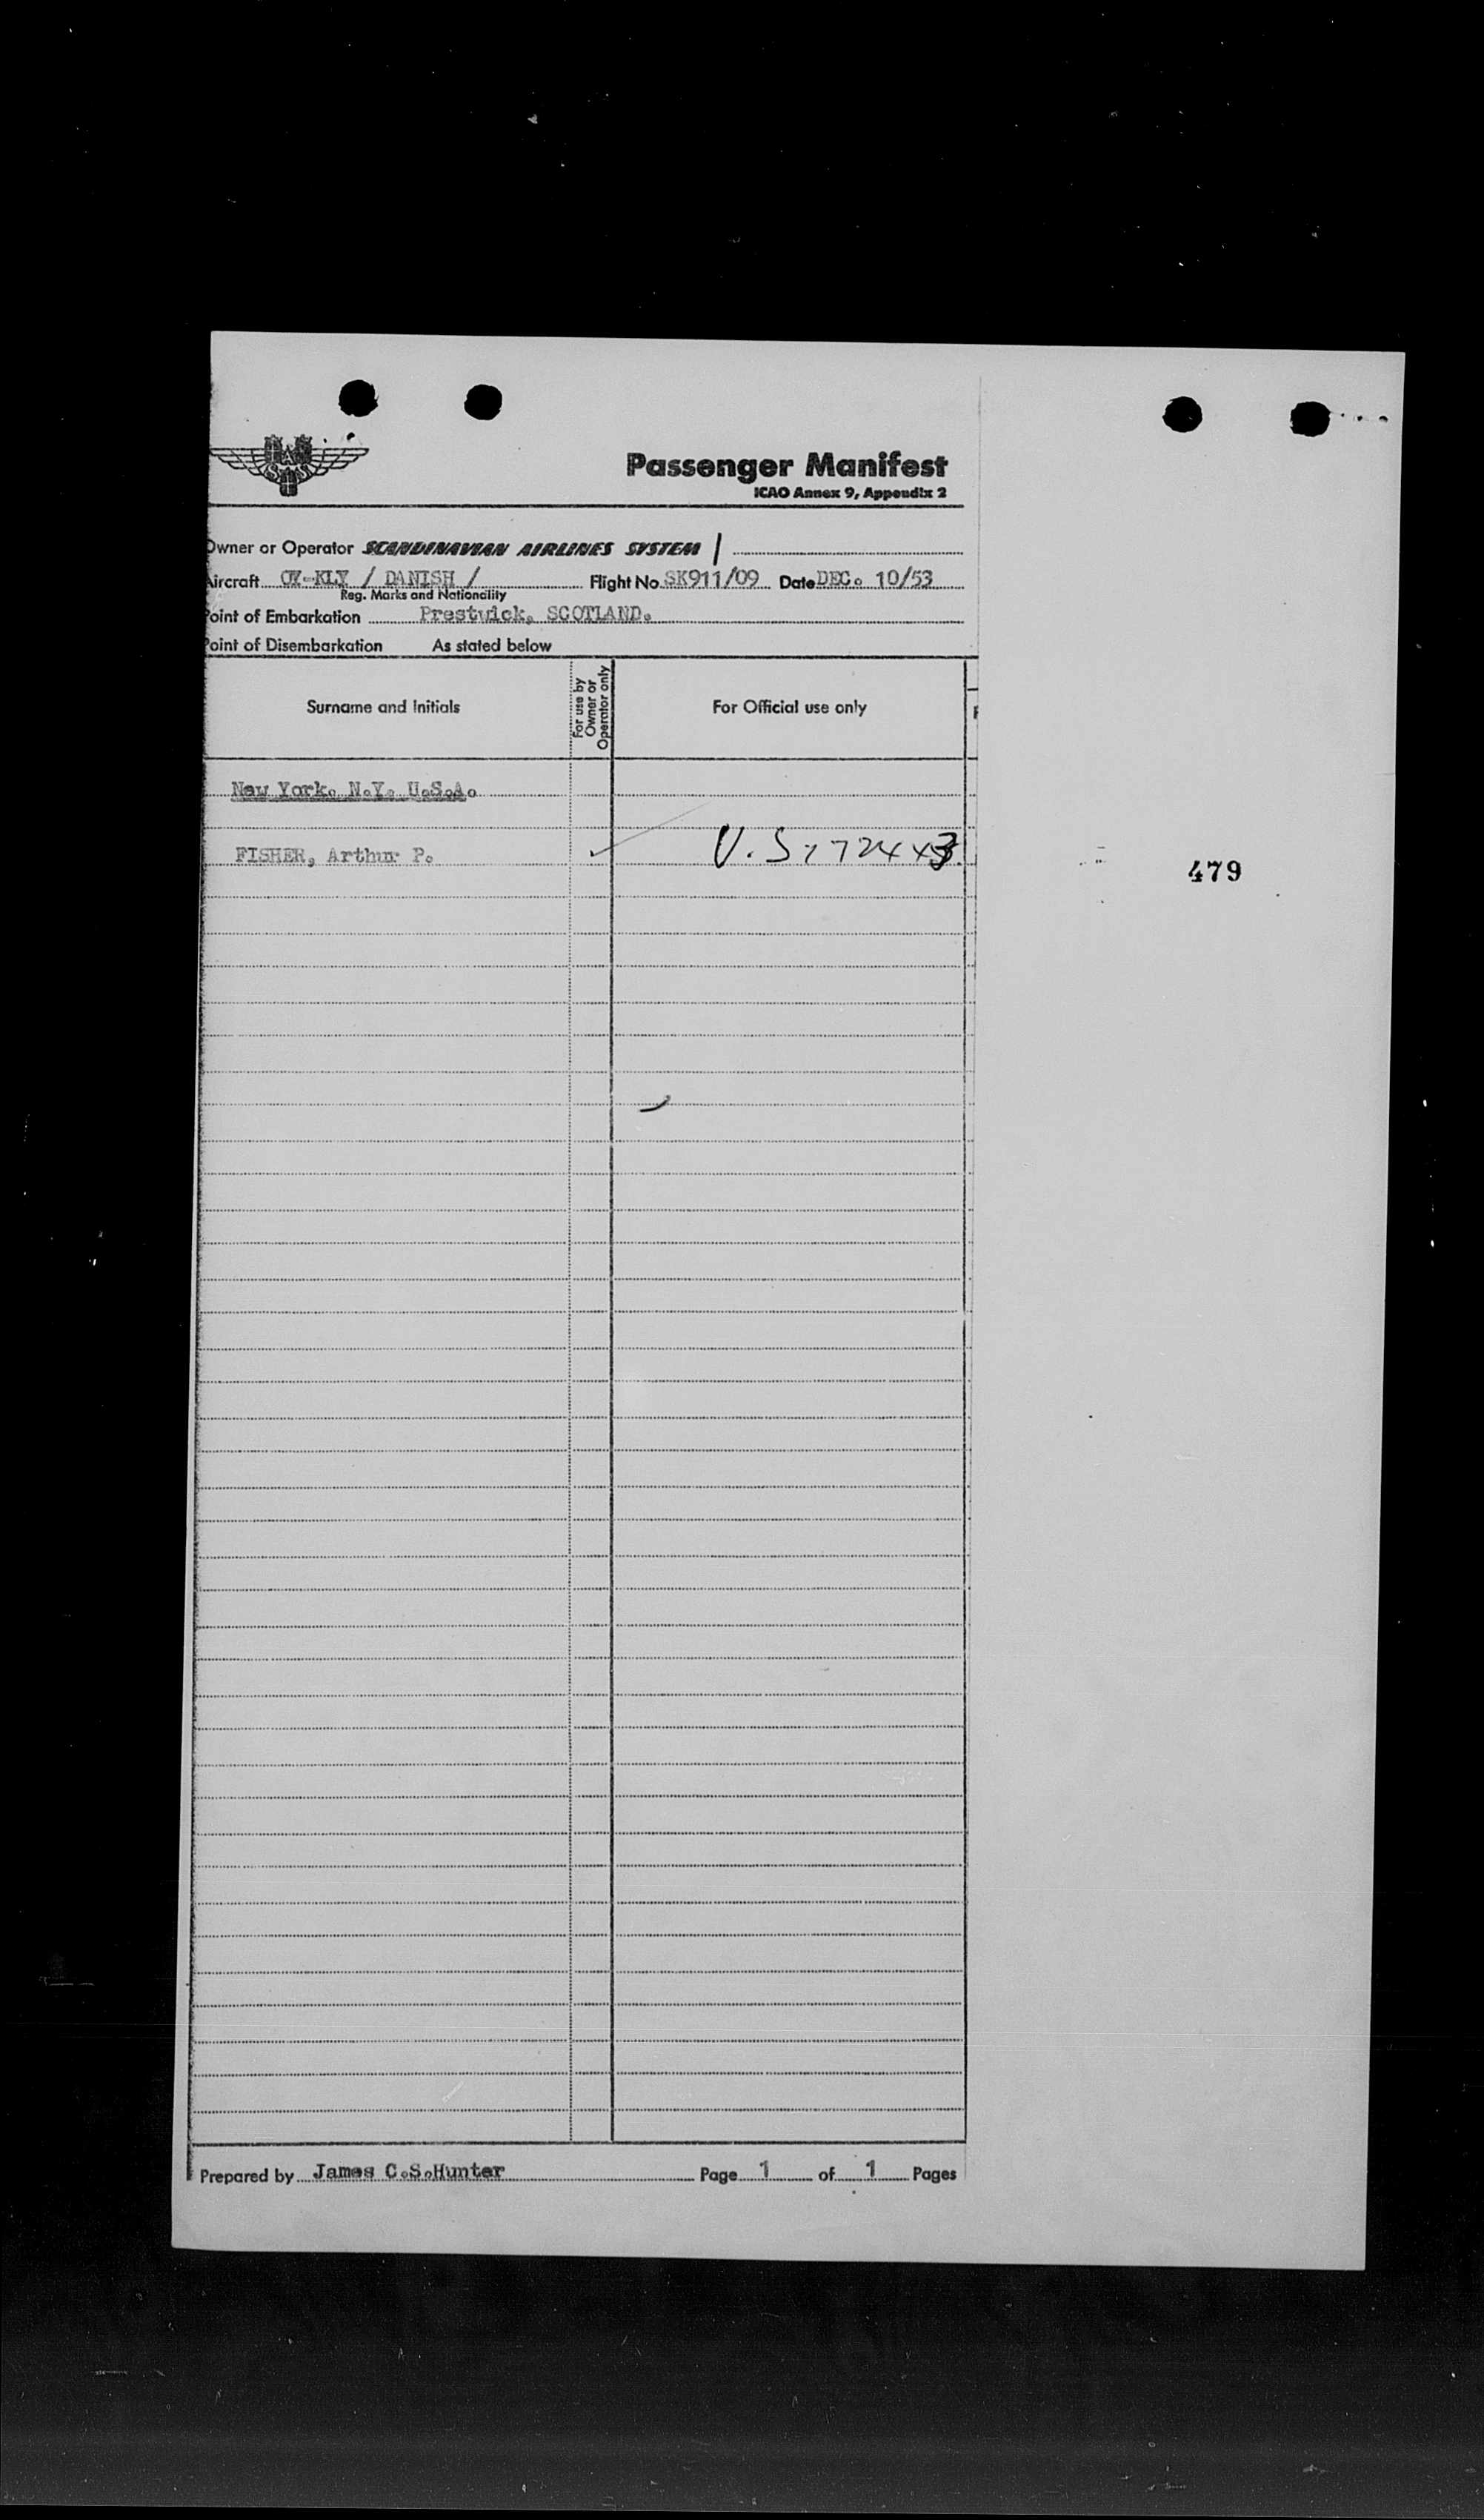 SAS
Passenger Manifest
ICAO Annex 9, Appendix 2
Owner or Operator SCANDINAVIAN AIRLINES SYSTEM /
Aircraft OY-KLY / DANISH / Flight No. SK911/09 Date DEC. 10/53
Reg. Marks and Nationality
Point of Embarkation Prestwick, SCOTLAND.
Point of Disembarkation As stated below
Surname and Initials
For use by Owner or Operator only
For Official use only
New York. N.Y. U.S.A.
FISHER, Arthur P. ✓ U.S.
479
Prepared by James C.S.Hunter Page 1 of 1 Pages